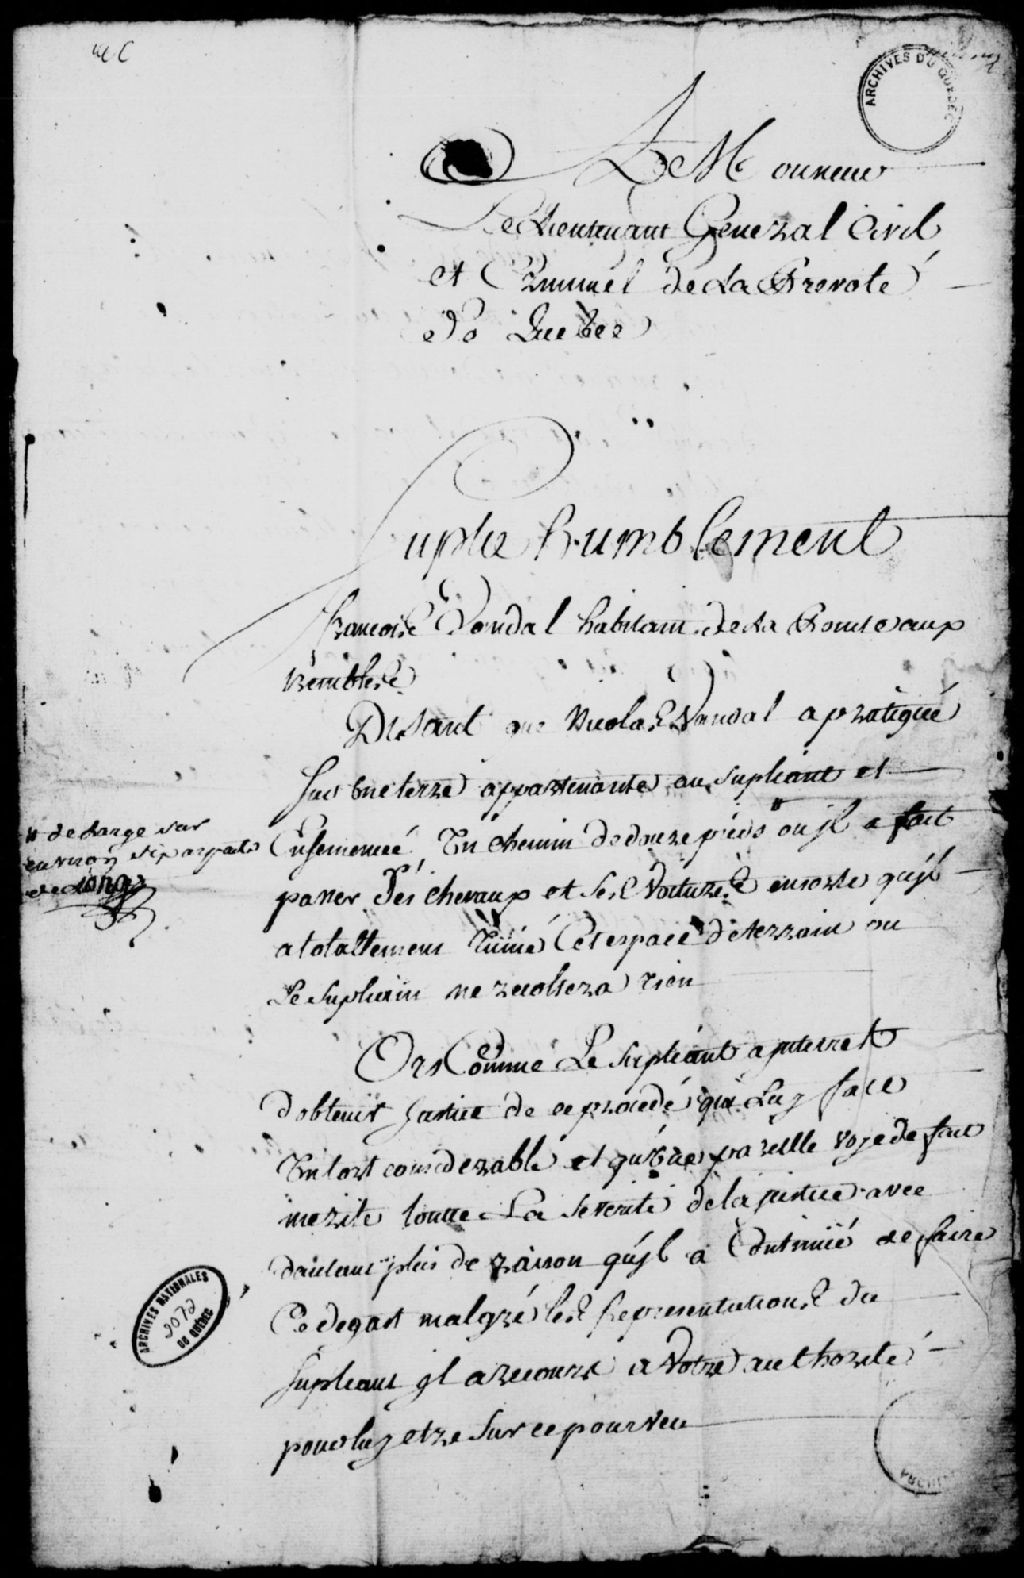 A Monsieur
Le Lieutenant General Civil
et Criminel de la Prevoté
de Quebec
Suplie humblement
françois Vandal habitant de la Pointe aux
trembles
Disant que Nicolas Vandal a pratiqué
sur une terre appartenante au supliant et
Ensemencé Un chemin de douze pieds # ou jl a fait
passer Ses chevaux et ses Voitures ensorte qu'jl
a totallement Ruiné Cet espace de terrain ou
Le Supliant ne recoltera rien
# de large sur
environ six arpents
de long
Ors Comme Le supliant a jnterest
d'obtenir justice de ce procedé qui Luy face
Un tort considerable et qu'une pareille voye de fait
merite toutte La severité de la justice avec
d'autant plus de raison qu'jl a Continué de faire
Ce degast malgré les Representations du
Supliant jl a recours a Votre authorité
pour luy etre sur ce pourveu
ARCHIVES DU QUEBEC
ARCHIVES NATIONALES
3072
DE QUEBEC